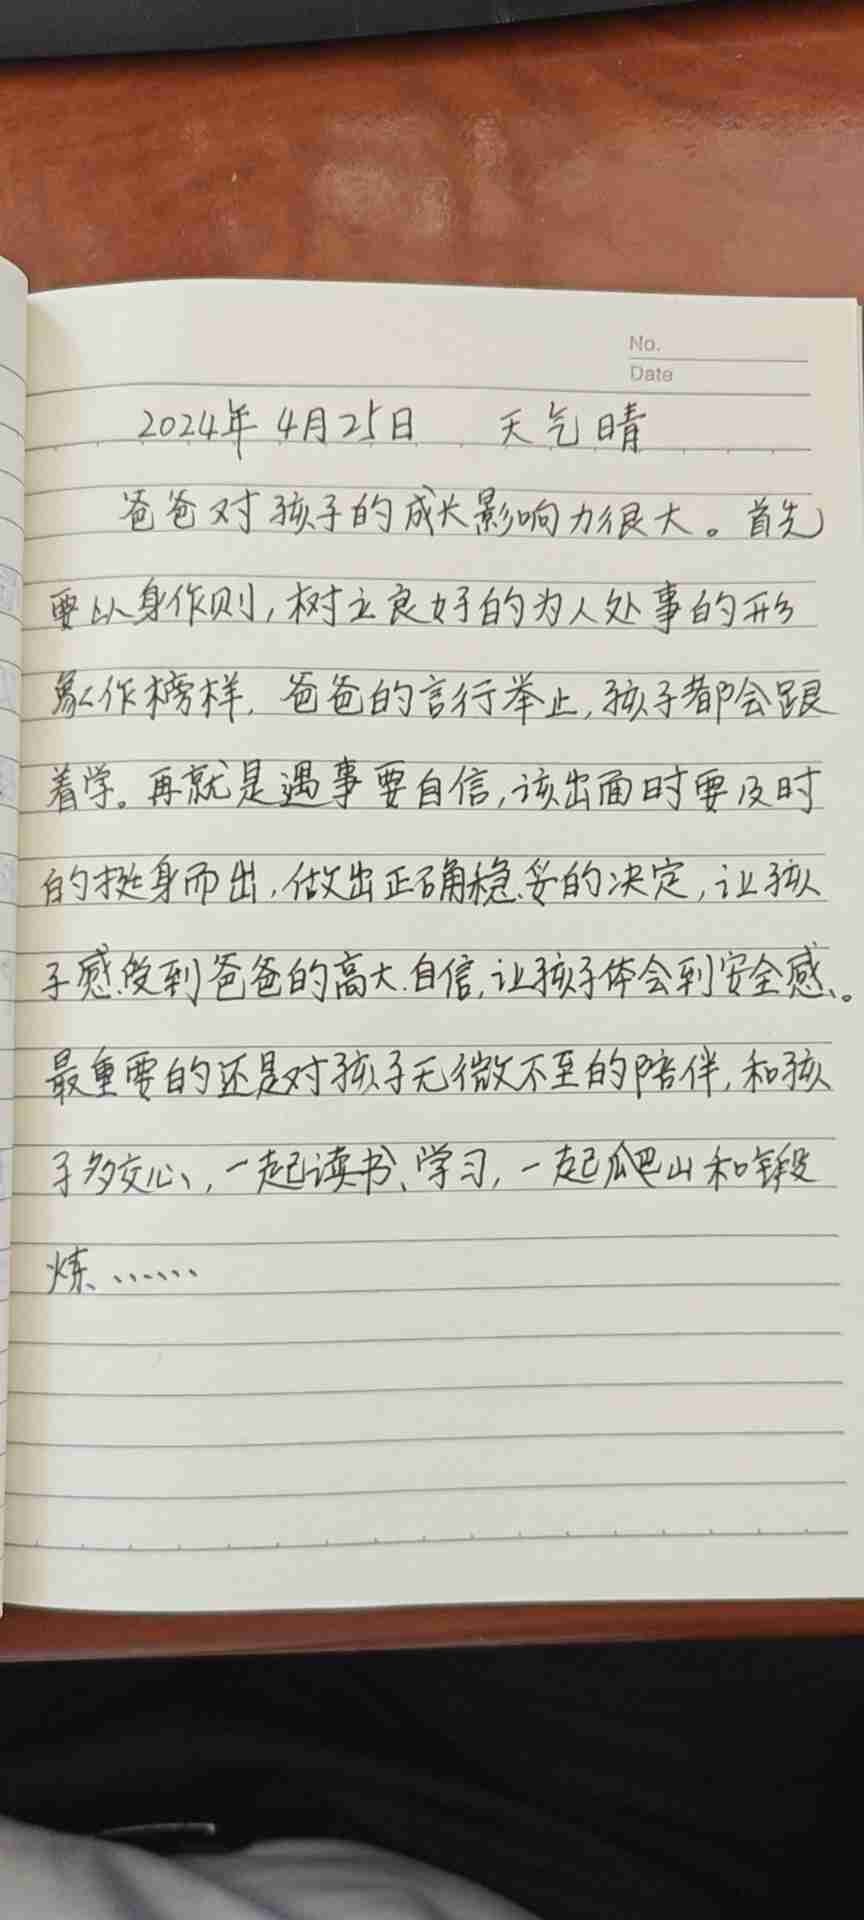 No.
Date
2024年4月25日 天气晴
爸爸对孩子的成长影响力很大。首先
要以身作则,树立良好的为人处事的形
象作榜样,爸爸的言行举止,孩子都会跟
着学。再就是遇事要自信,该出面时要及时
的挺身而出,做出正确稳妥的决定,让孩
子感受到爸爸的高大.自信,让孩子体会到安全感。
最重要的还是对孩子无微不至的陪伴,和孩
子多交心,一起读书、学习,一起爬山和锻
炼……